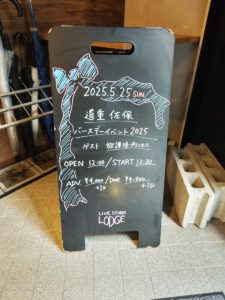 2025.5.25 SUN
道重 佐保
バースデーイベント2025
ゲスト 放課後
OPEN 12:00 / START 12:30
ADV. ¥4,000 / Door ¥4,500
+1D +1D
LIVE STUDIO
LODGE